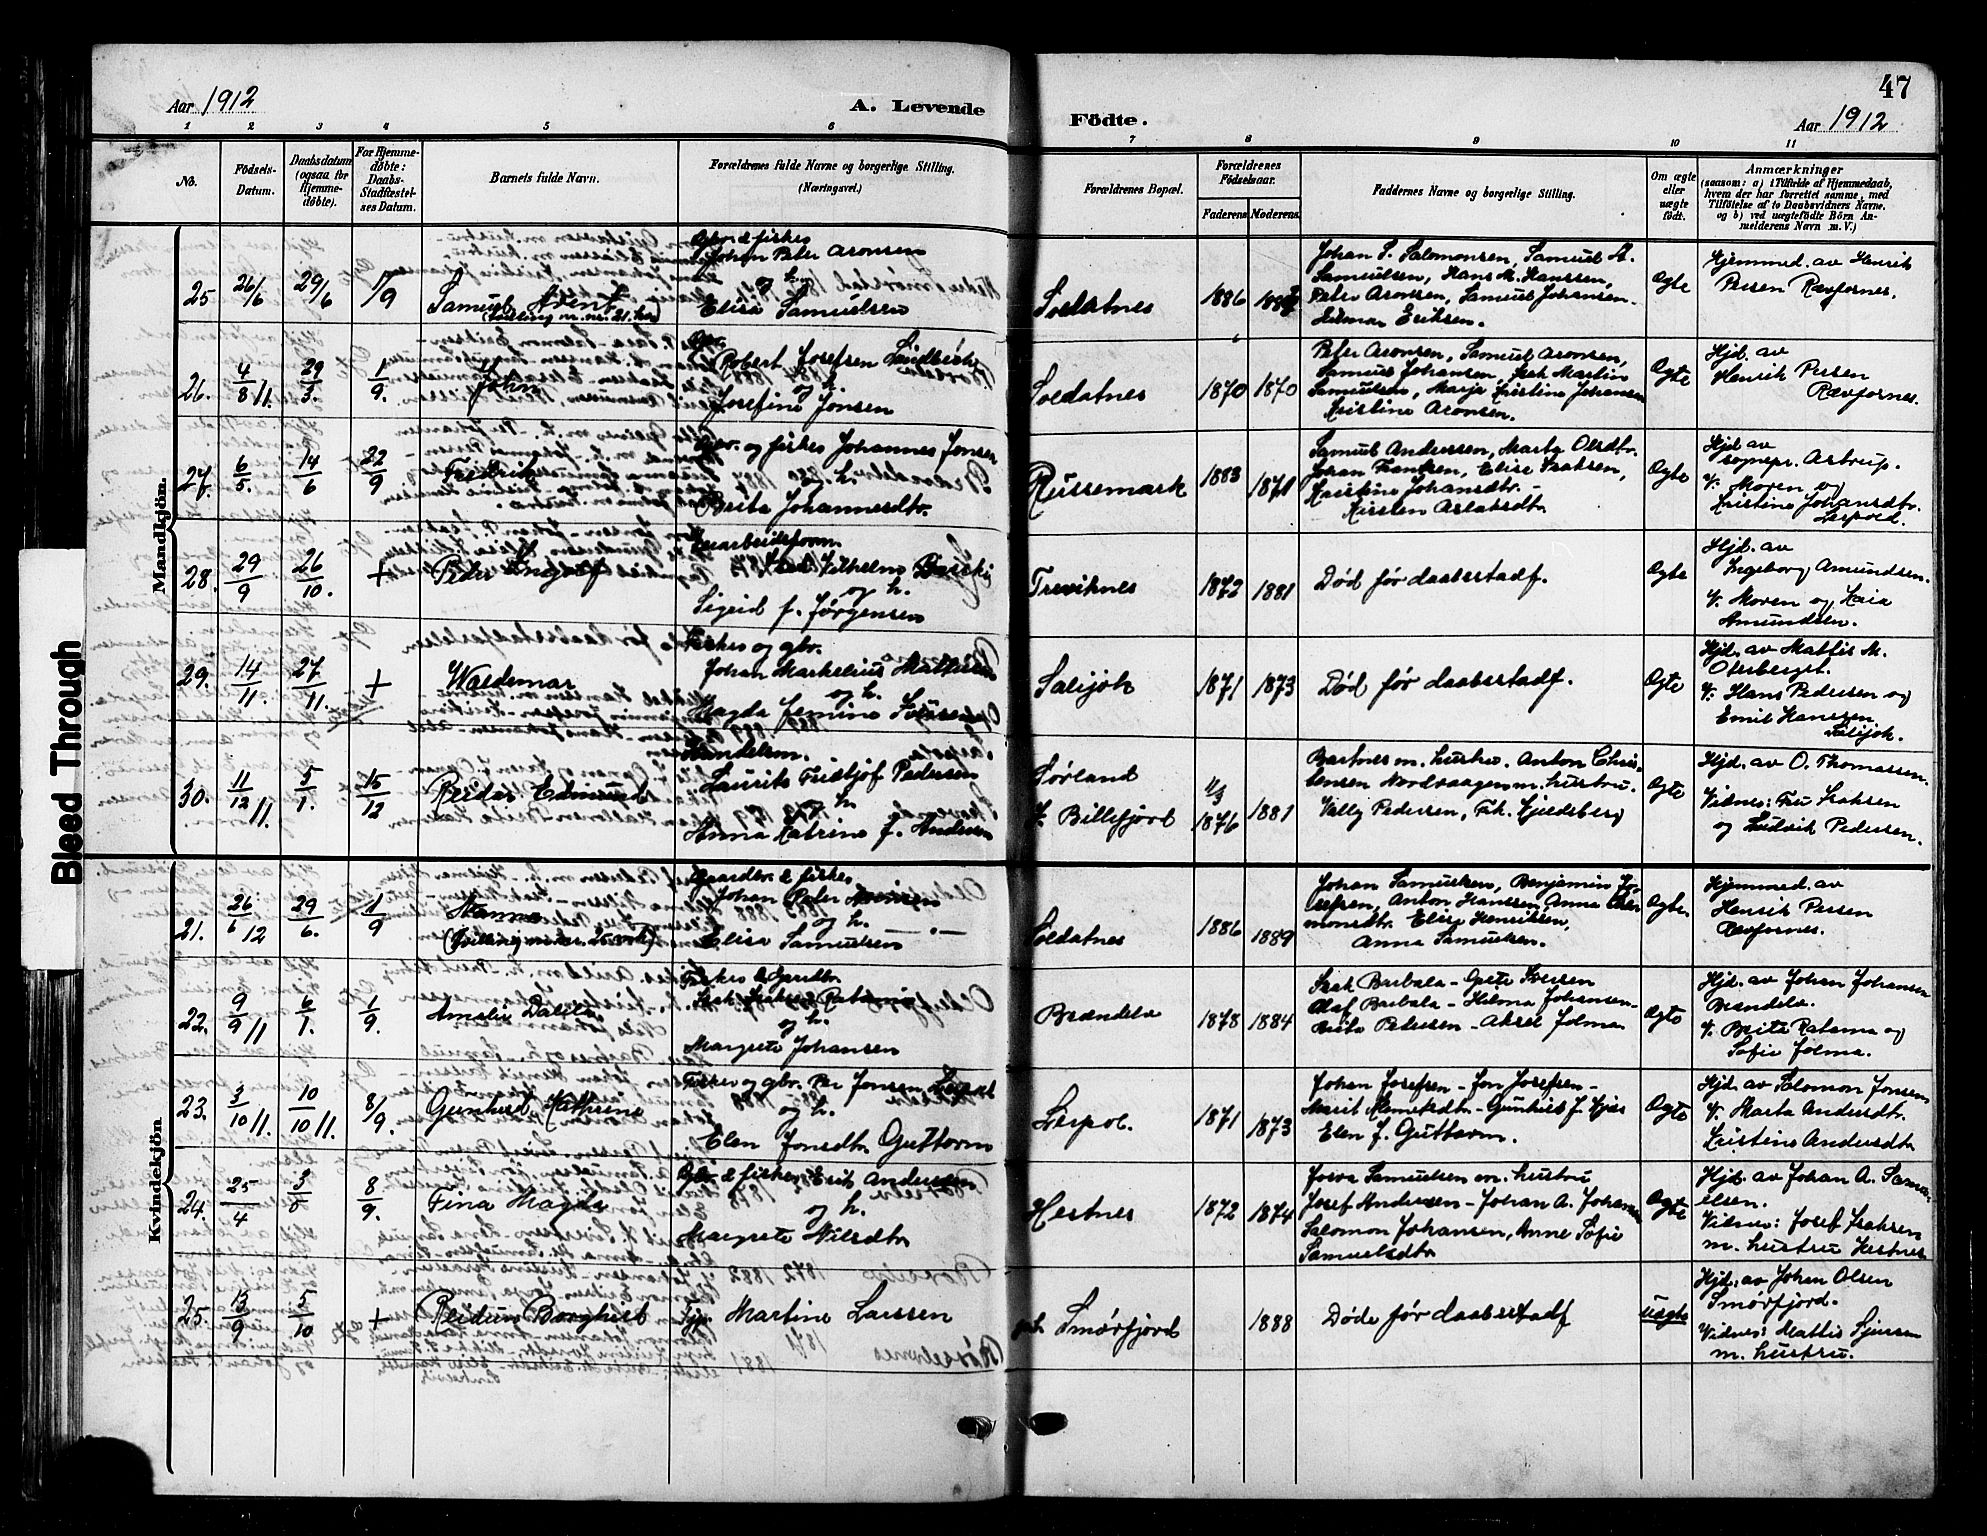 Aar 1912
A. Levende
Fødte.
47
Aar 1912
1 2 3 4 5 6 7 8 9 10 11
No.
Fødsels-
Datum.
Daabsdatum
(ogsaa for
Hjemme-
døbte).
For Hjemme-
døbte:
Daabs-
Stadfæstel-
ses Datum.
Barnets fulde Navn.
Forældrenes fulde Navne og borgerlige Stilling.
(Næringsvei.)
Forældrenes Bopæl.
Forældrenes
Fødselsaar.
Faderens Moderens
Faddernes Navne og borgerlige Stilling.
Om ægte
eller
uægte
født.
Anmærkninger
(saasom: a) i Tilfælde af Hjemmedaab,
hvem der har forrettet samme, med
Tilføielse af to Daabsvidners Navne,
og b) ved uægtefødte Børn An-
melderens Navn m. V.)
Mandkjøn.
25 26/6 29/6 1/9
Samuel Arent
(tvilling m. nr. 21. kv.)
Gbr. & fisker
Johan Peter Aronsen
og h.
Elisa Samuelsen
Soldatnes
1886
Johan P. Salomonsen, Samuel A.
Samuelsen, Hans M. Hanssen,
Peter Aronsen, Samuel Johansen.
Hilmar Eriksen.
Ægte
Hjemmed. av Henrik
Persen Rævfornes.
26. 4/8 11. 29/3. 1/9.
John
Gbr.
Robert Josefsen
og h.
Josefine Jonsen
Soldatnes
1870 1870
Peter Aronsen, Samuel Aronsen,
Samuel Johansen, Isak Martin
Samuelsen, Marja Kristine Johansen
Kristine Aronsen.
Ægte
Hjd. av
Henrik Persen
Rævfornes.
27. 6/5. 14/6 22/9
Fredrik
Gbr. og fisker Johannes Jonsen
og h.
Brita Johannesdtr.
Russemark
1883 1871
Samuel Anderssen, Marty Olsdtr.
Johan Frantzen, Elise Isaksen,
Kristine Johansdtr. -
Kirsten Aslaksdtr.
Ægte
Hjd. av
sognepr. Astrup.
V. Moren og
Kristine Johansdtr.
Leirpold.
28. 29/9 26/10. +
Peder Ingolf
Vilhelm
og h.
Sigrid f. Jørgensen
Treviknes
1872 1881
Død før daabsstadf.
Ægte
Hjd. av
Ingeborg Amundsen.
V. Moren og Kaia
Amundsen.
29. 14/11. 27/11. +
Waldemar
Fisker og gbr.
Johan Markelius Mathisen
og h.
Magda Jemine
Salijok
1871 1873
Død før daabsstadf.
Ægte
Hjd. av Mattis M.
Oterberget.
V. Hans Pedersen og
Emil Hansen
Salijok.
30. 11/12 11. 5/1. 15/12
Reidar Edmund
Handelsm.
Laurits Fridtjof Pedersen
og h.
Anna Katrine f. Andersen
Sørland
p. Billefjord
4/3
1876 1881
Bartnes m. hustru. Anton Chris-
tensen Nordsaagen m. hustru.
Vally Pedersen, Frk. Kjeldsberg
Ægte
Hjd. av O. Thomassen.
Vidner: Fru Isaksen
og Ludvik Pedersen.
Kvindekjøn
21. 26/6 12 29/6. 1/9
Hanna
Gaardbr. & fisker
Johan Peter Aronsen
og h.
Elisa Samuelsen
Soldatnes
1886 1889
Johan Samuelsen, Benjamin Jo-
sefsen, Anton Hanssen, Anna Salo-
monsdtr. Elise Henriksen,
Anna Samuelsen.
Ægte.
Hjemmed. av
Henrik Persen
Rævfornes.
22. 9/9 11 6/1. 1/9.
Amalie Dalila
Fisker & Gaardbr.
Isak Isaksen Ratama
og h.
Margrete Johansen
Brændelv
1878 1884
Isak Barbala - Grete Iversen
Olaf Barbala - Helma Johansen -
Brita Petersen - Aksel Jolma
Ægte
Hjd. av Johan Johansen
Brændelv.
V. Brita Ratama og
Sofie Jolma.
23. 3/10 11. 10/10 11. 8/9.
Gunhild Kathrine
Fisker og gbr. Per Jonsen
og h.
Elen Jonsdtr. Guttorm
Leirpol.
1871 1873
Johan Josefsen - Jon Josefsen -
Marit Klemetsdtr - Gunhild J. Kjær
Elen J. Guttorm.
Ægte
Hjd. av Salomon Jonsen
V. Marta Andersdtr.
Kristine Andersdtr
24. 25/4 3/5 8/9.
Fina Magda
Gbr. & fisker Erik Andersen
og h.
Margrete Nilsdtr
Hestnes
1872 1874
Josva Samuelsen m. hustru
Josef Andersen - Johan A. Johansen
Salomon Johansen, Anne Sofie
Samuelsdtr
Ægte
Hjd. av Johan A. Samu-
elsen.
Vidner: Josef Isaksen
m. hustru Hestnes
25. 13/9 5/10 +
Reidun Borghild
Tjp. Martine Larssen
Smørfjord
1888
Døde før daabsstadf
uægte
Hjd. av Johan Olsen
Smørfjord.
Vidner: Mattis Sjursen
m. hustru.
Bleed Through